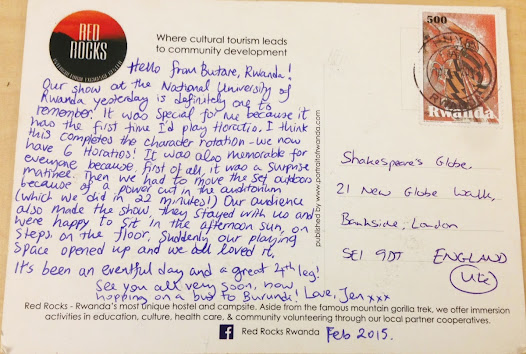 RED
ROCKS
Where cultural tourism leads
to community development
500
Rwanda
Hello from Butare, Rwanda!
Our show at the National University of
Rwanda yesterday is definitely one to
remember. It was special for me because it
was the first time I'd play Horatio. I think
this completed the character rotation - we now
have 6 Horatios! It was also memorable for
everyone because, first of all, it was a surprise
matinee. Then we had to move the set outdoors
because of a power cut in the auditorium
(which we did in 22 minutes!) Our audience
also made the show, they stayed with us and
were happy to sit in the afternoon sun, on
steps, on the floor. Suddenly our playing
space opened up and we all loved it.
It's been an eventful day and a great 4th leg!
See you all very soon, now
hopping on a bus to Burundi! Love, Jen xxx
published by www.portraitofrwanda.com
Shakespeare's Globe,
21 New Globe Walk,
Bankside, London
SE1 9DT ENGLAND
(UK)
Red Rocks - Rwanda's most unique hostel and campsite. Aside from the famous mountain gorilla trek, we offer immersion
activities in education, culture, health care, & community volunteering through our local partner cooperatives.
f Red Rocks Rwanda
Feb 2015.